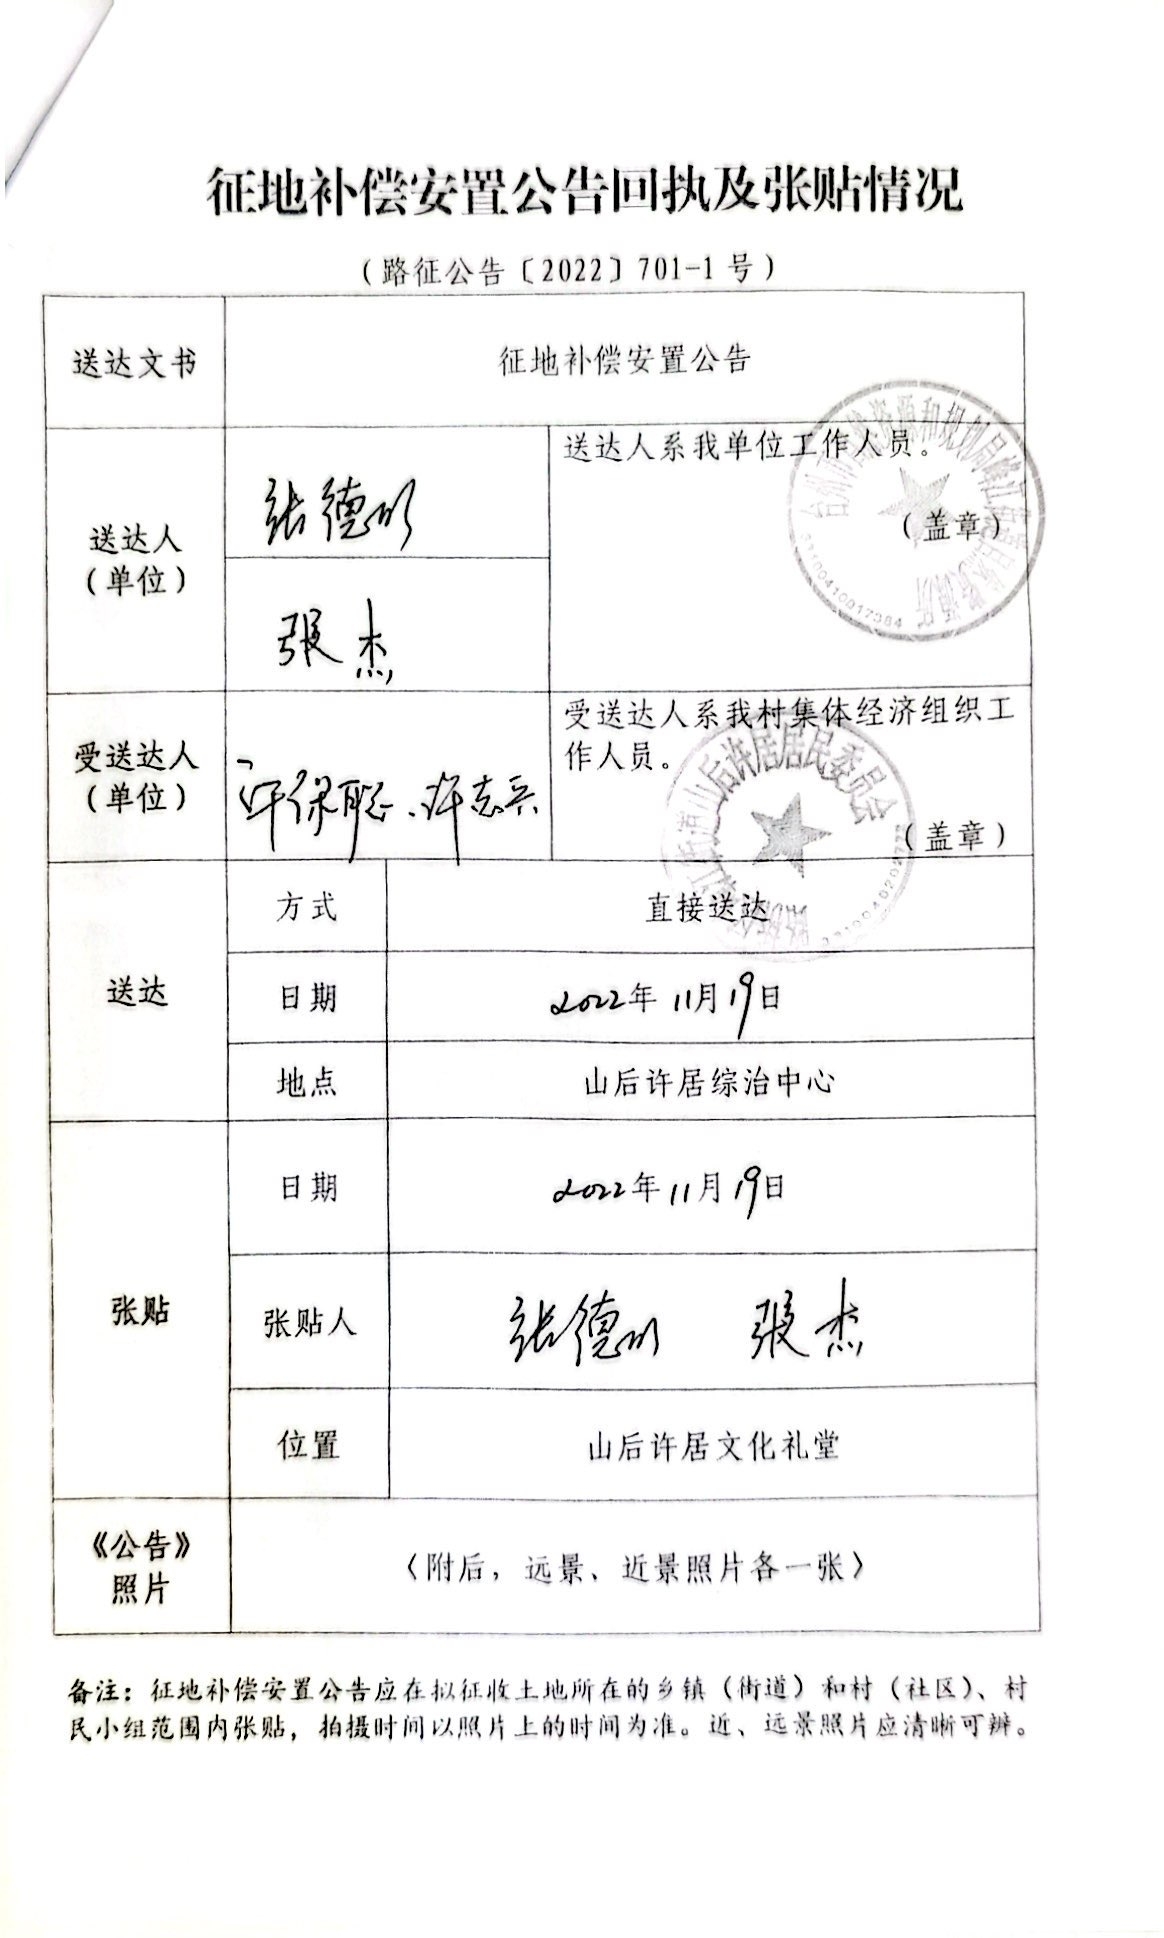 征地补偿安置公告回执及张贴情况
（路征公告〔2022〕701-1号）
送达文书
征地补偿安置公告
送达人
（单位）
张德
张杰
送达人系我单位工作人员。
（盖章）
33100410017384
受送达人
（单位）
许保聪、许志兵
受送达人系我村集体经济组织工
作人员。
山后许居居民委员会
（盖章）
送达
方式
直接送达
日期
2022年11月19日
地点
山后许居综治中心
张贴
日期
2022年11月19日
张贴人
张德
张杰
位置
山后许居文化礼堂
《公告》
照片
〈附后，远景、近景照片各一张〉
备注：征地补偿安置公告应在拟征收土地所在的乡镇（街道）和村（社区）、村
民小组范围内张贴，拍摄时间以照片上的时间为准。近、远景照片应清晰可辨。